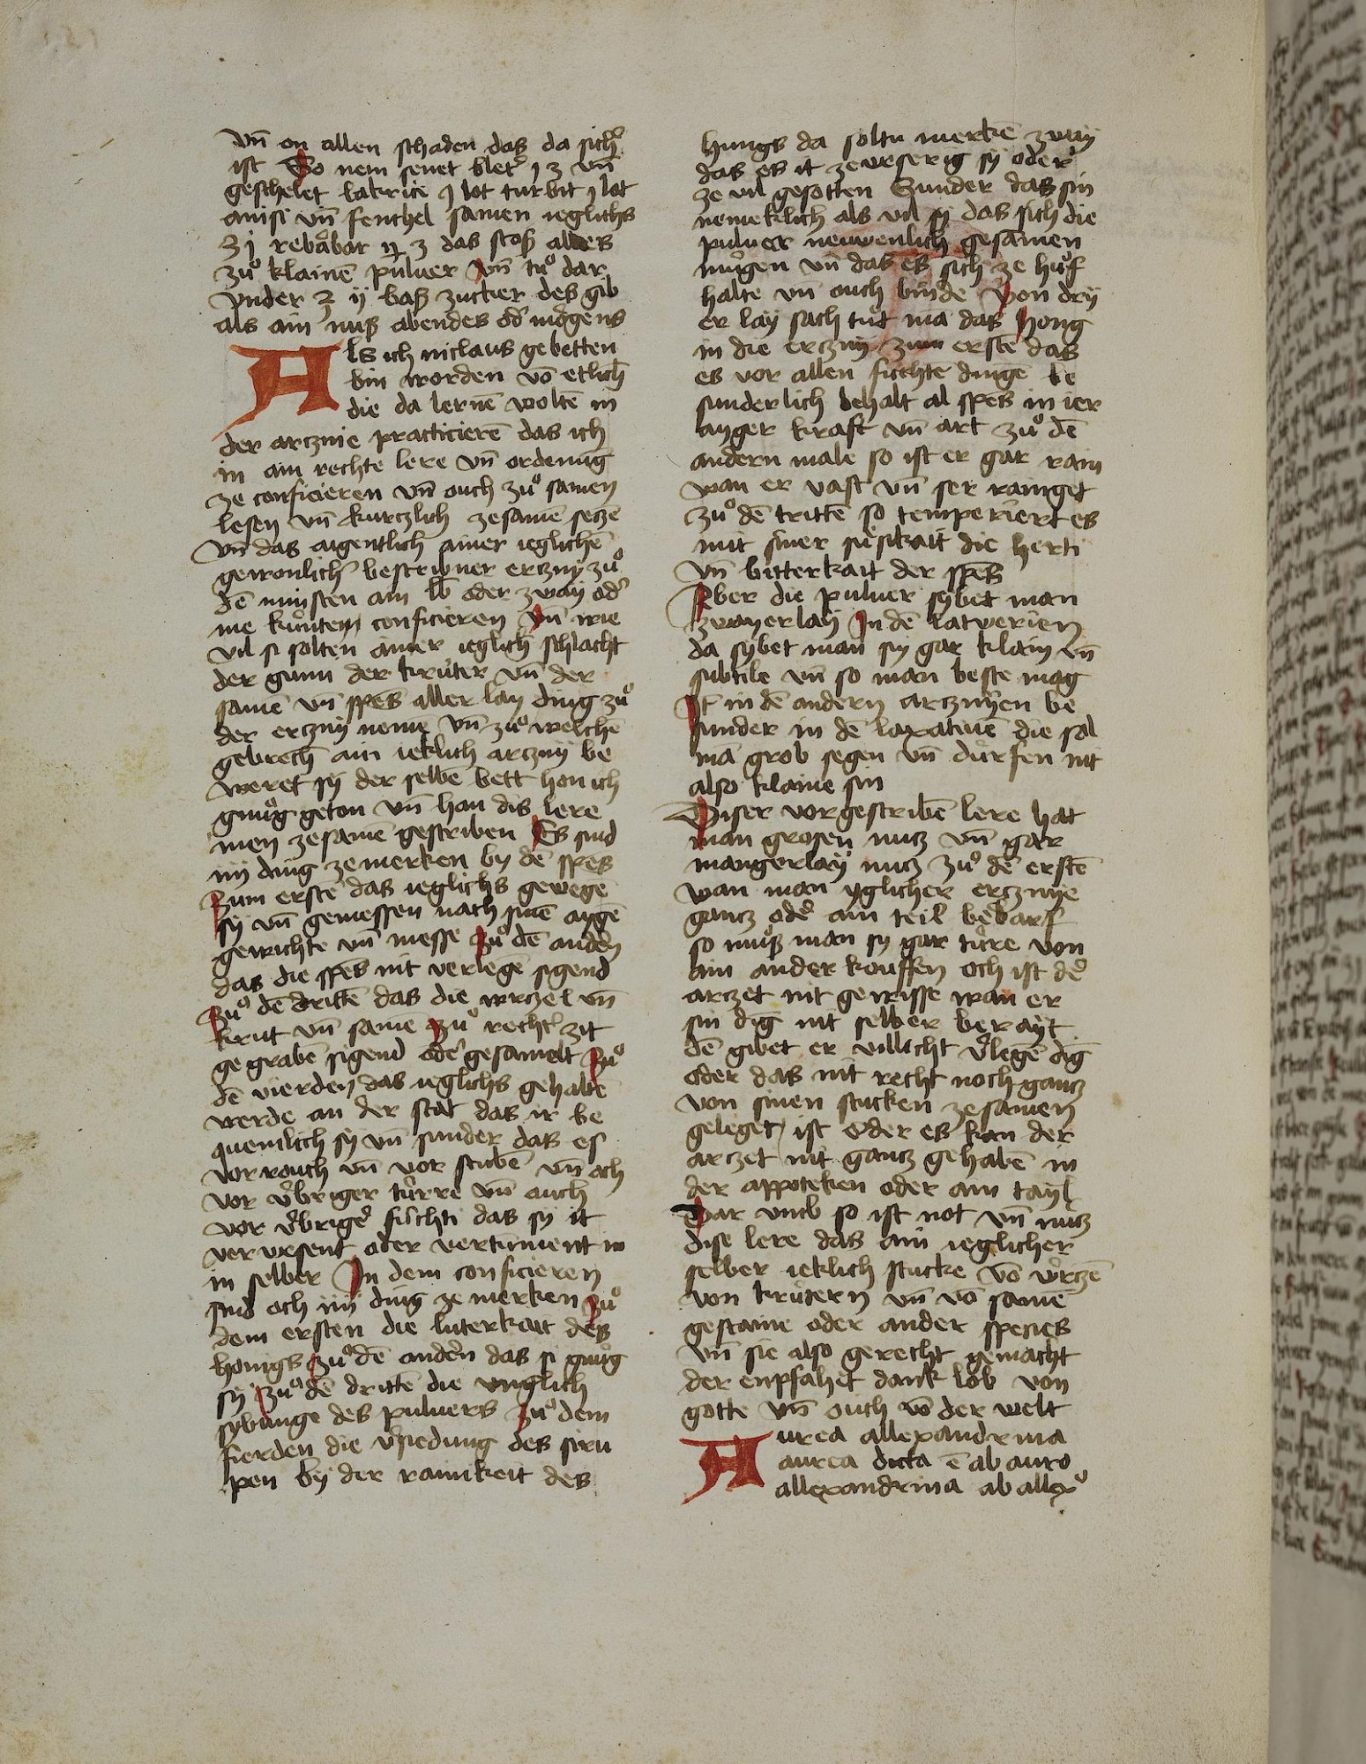 vn̄ on allen schaden das da sich͛
ist So nem senet blet͛ j ʒ vn̄
geschelet lakricie j lot turbit j lot
anisi vn̄ fenchel samen ieglichs
ʒ j rebarbar ij ʒ das stos alles
zuͦ klainē puluer vn̄ tuͦ dar
vnder ℥ ij bas zucker des gib
als ain nuss abendes od͛ morgens
Als ich niclaus gebetten
bin worden vō etlich̄
die da lernē woltē in
der arcznie practicierē das ich
in ain rechte lere vn̄ ordenūg
ze conficieren vn̄ ouch zuͦ samen
lesen vn̄ kurczlich zesamē secze
vn̄ das aigentlich ainer ieglichē
gewonlich̄ bescribner erczny zuͦ
dē minsten ain lb oder zway od͛
me kuntem conficieren vn̄ wie
vil si solten ainer ieglich̄ schlacht
der gumi der krúter vn̄ der
samē vn̄ spēs aller lay ding zuͦ
der erczny neme vn̄ zuͦ welche
gebrech̄ ain ieklich arczny be
weret sy der selbē bett hon ich
gnuͦg geton vn̄ han dis lere
inen zesamē gescriben Es sind
iiij ding zemerken by dē spēs
Zum erstē das ieglichs gewege
sy vn̄ gemessen nach sinē aygē
gewichte vn̄ messe Zuͦ dē andn̄
das die spēs nit verlegē sigend
Zuͦ dē drittē das die wrczel vn̄
krut vn̄ samē zuͦ recht͛ zit
ge grabē sigend ode͛ gesamelt Zuͦ
dē vierden das ieglichs gehabē
werde an der stat das ir be
quemlich sy vn̄ sunder das es
vor rouch vn̄ vor stubē vn̄ och
vor v͛briger túrre vn̄ ouch
vor v͛brige͛ fúchti das sy it
verwesent oder vertument in
in selber In dem conficieren
sind och iiij ding ze merken zuͦ
dem ersten die luterkait des
honigs zuͦ dē andern das si gnuͦg
sy zuͦ dē drittē die vnglich
sybunge des puluers Zuͦ dem
fierden die v͛siedung des siru
pen by der rainikeit des
hungs da soltu merkē zway
das es it ze weserig sy oder
ze vil gesotten Sunder das sin
nemeklich als vil sy das sich die
puluer neuwenlich gesamen
mugen vn̄ das es sich ze huf
halte vn̄ ouch binde Von dry
er lay sach tuͦt ma das hong
in die erczny zum erste das
es vor allen fúchte dinge be
sunderlich behalt al spēs in ier
ayger kraft vn̄ art zuͦ dē
andern male so ist er gar rain
wan er vast vn̄ ser rainget
zuͦ dē trittē so temperiert es
mit siner suͤsikait die herti
vn̄ bitterkait der spēs
Aber die puluer sybet man
zwayerlay In dē latwerien
da sybet man sy gar klain vn̄
subtile vn̄ so man beste mag
It̄ in dē andern arcznyen be
sunder in dē laxatiuē die sol
mā grob segen vn̄ durfen nit
also klaine sin
Diser vorgescribē lere hat
man grosen nucz vn̄ gar
mangerlay nucz zuͦ dē erstē
wan man yglicher ercznye
gancz ode͛ ain teil bedarf
so muͦs man sy gar túre von
ain ander kouffen och ist de͛
arczet nit gewisse wan er
sin dīg nit selber berayt
dē gibet er villicht v͛legē dīg
oder das nit recht noch gancz
von sinen stucken zesamen
geleget ist oder es kan der
arczet nit gancz gehabē in
der appoteken oder ain tayl
Dar vmb so ist not vn̄ nucz
dise lere das ain ieglicher
selber ieklich stucke vō wurczē
von krútern vn̄ vō samē
gestaine oder ander species
vn̄ sie also gerecht gemacht
der enpfahet dank lob von
gotte vn̄ ouch vō der welt
Aurea allexandrina
aurea dicta ē ab auro
allexandrina ab allexͦ